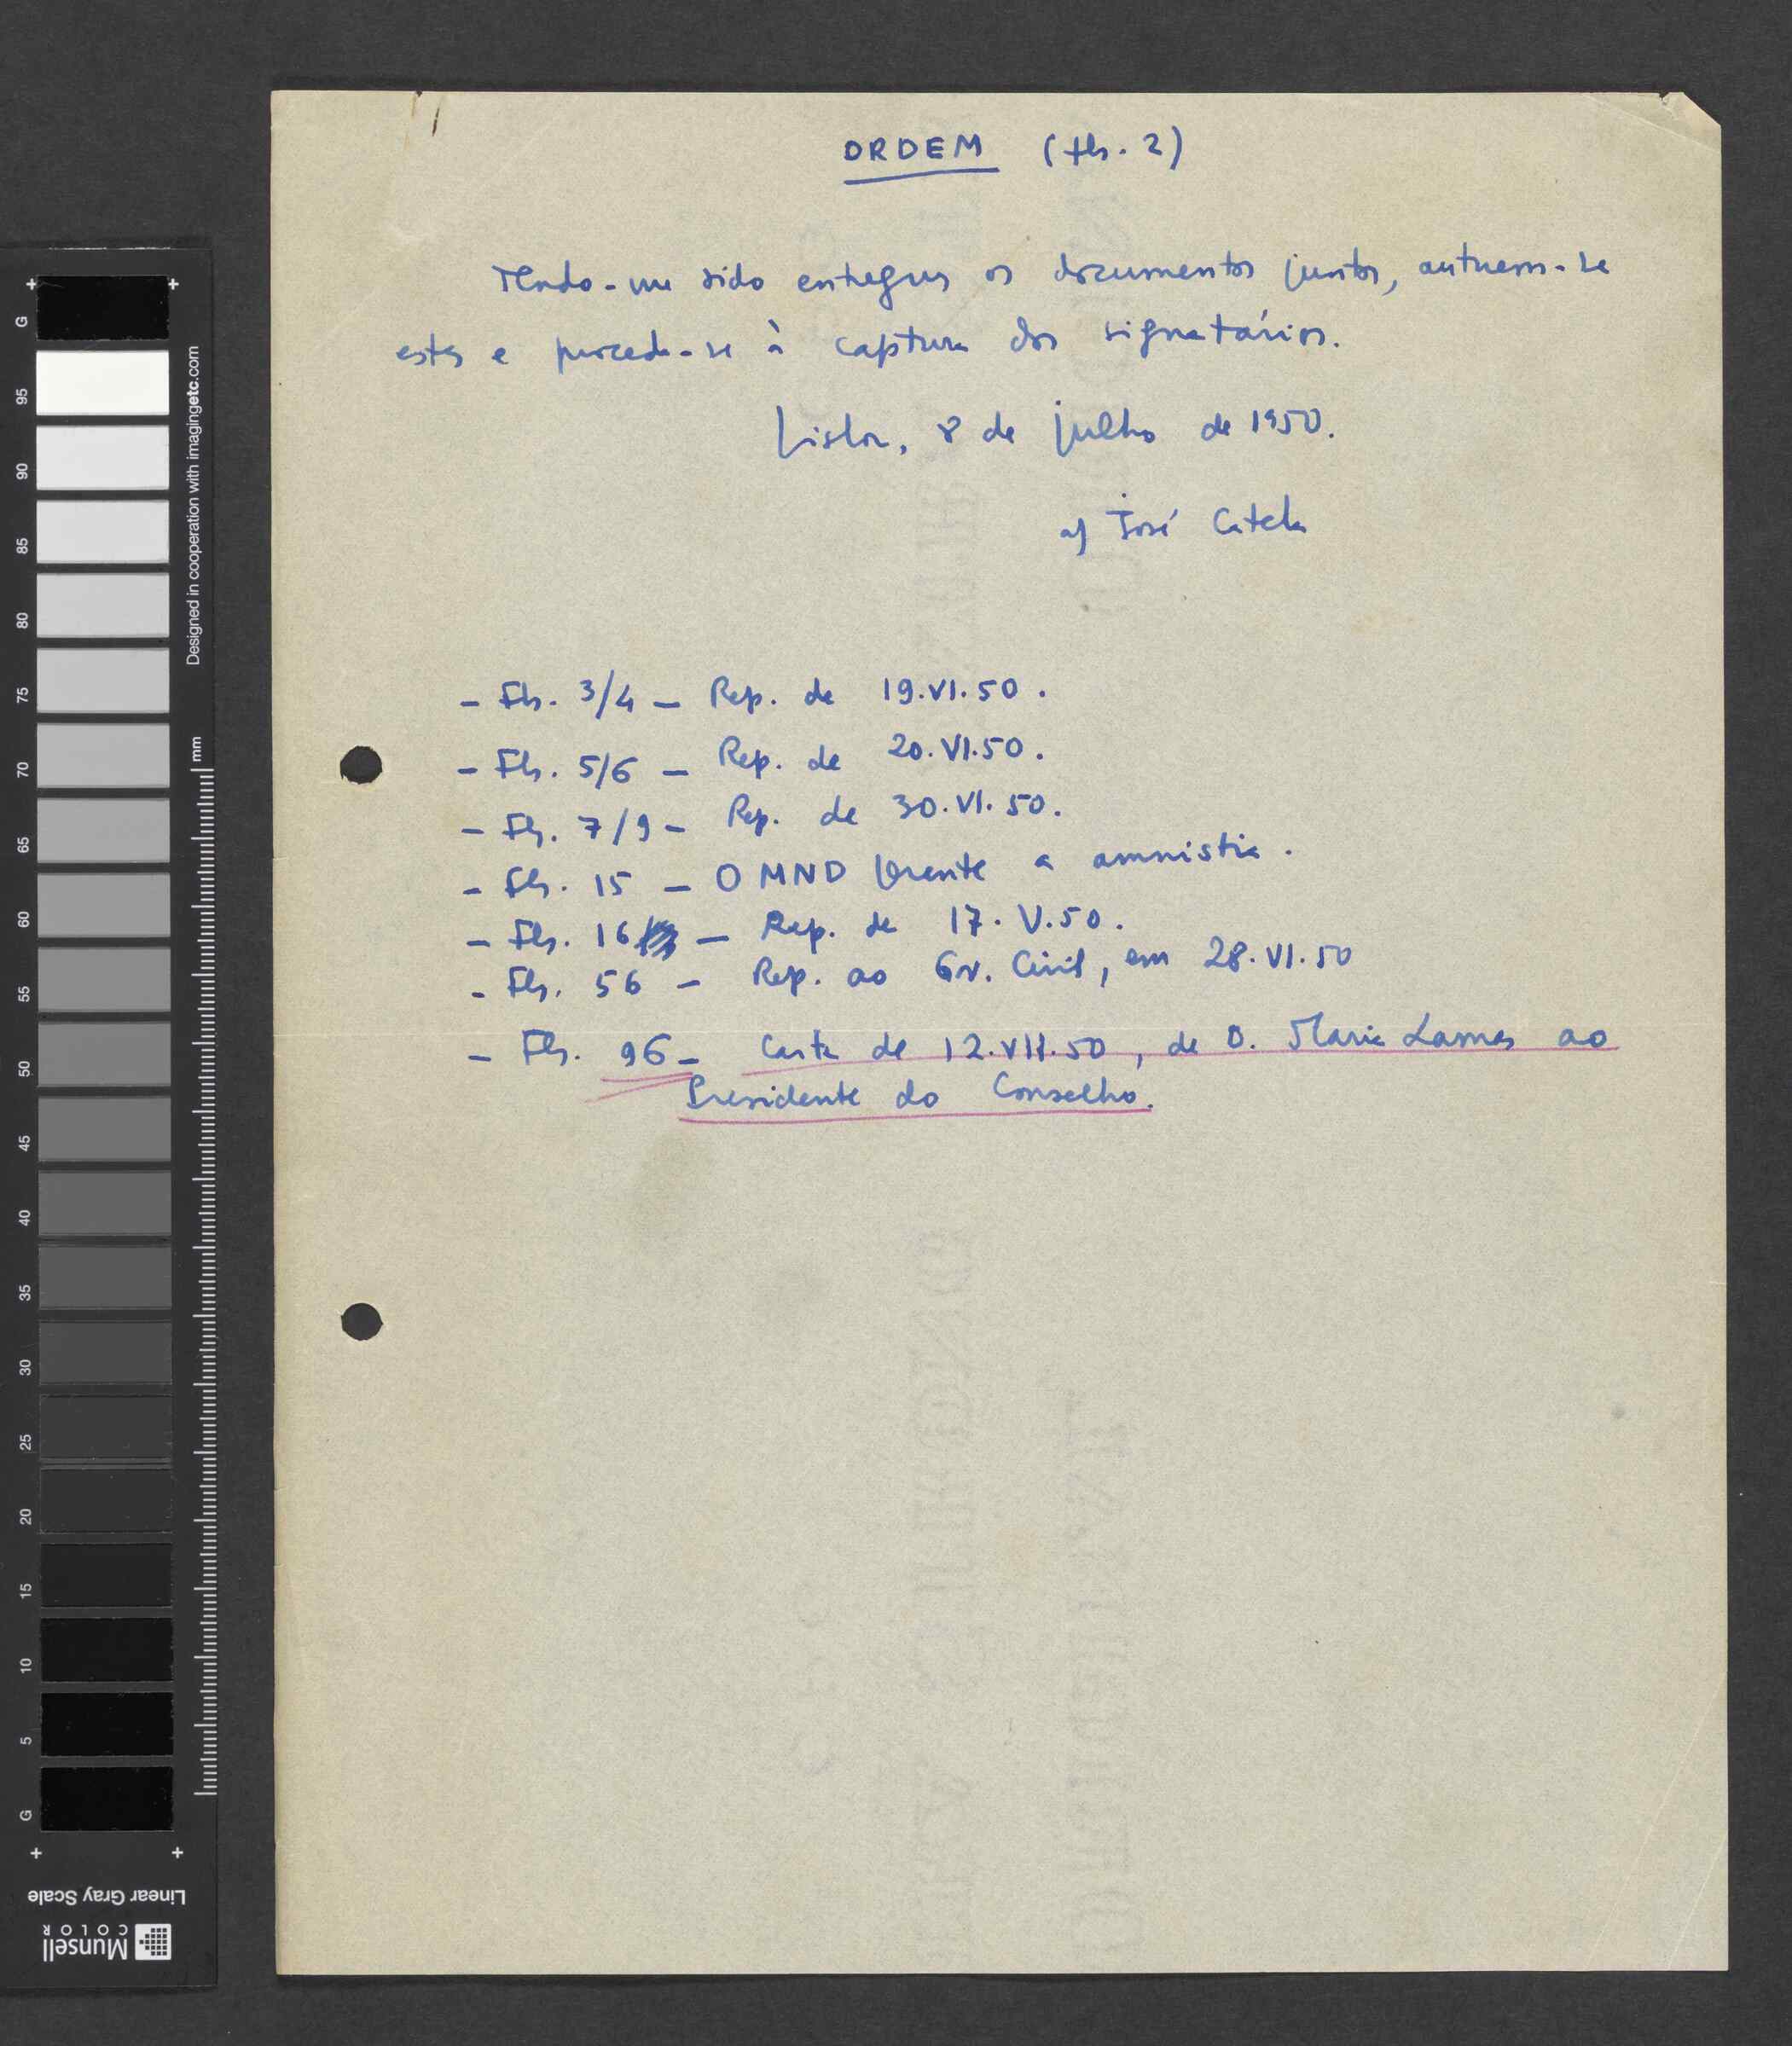 ORDEM (fls. 2)
Tendo-me sido entregues os documentos juntos, autuem-se
estes e proceda-se à captura dos signatários.
Lisboa, 8 de julho de 1950.
a) José Catela
- Fls. 3/4 - Rep. de 19.VI.50.
- Fls. 5/6 - Rep. de 20.VI.50.
- Fls. 7/9 - Rep. de 30.VI.50.
- Fls. 15 - O MND perante a amnistia.
- Fls. 16 - Rep. de 17.V.50.
- Fls. 56 - Rep. ao Gov. Civil, em 28.VI.50
- Fls. 96 - Carta de 12.VII.50, de D. Maria Lamas ao
Presidente do Conselho.
G
95
90
85
80
75
70
65
60
55
50
45
40
35
30
25
20
15
10
5
G
mm
Designed in cooperation with imagingetc.com
Linear Gray Scale
Munsell
COLOR